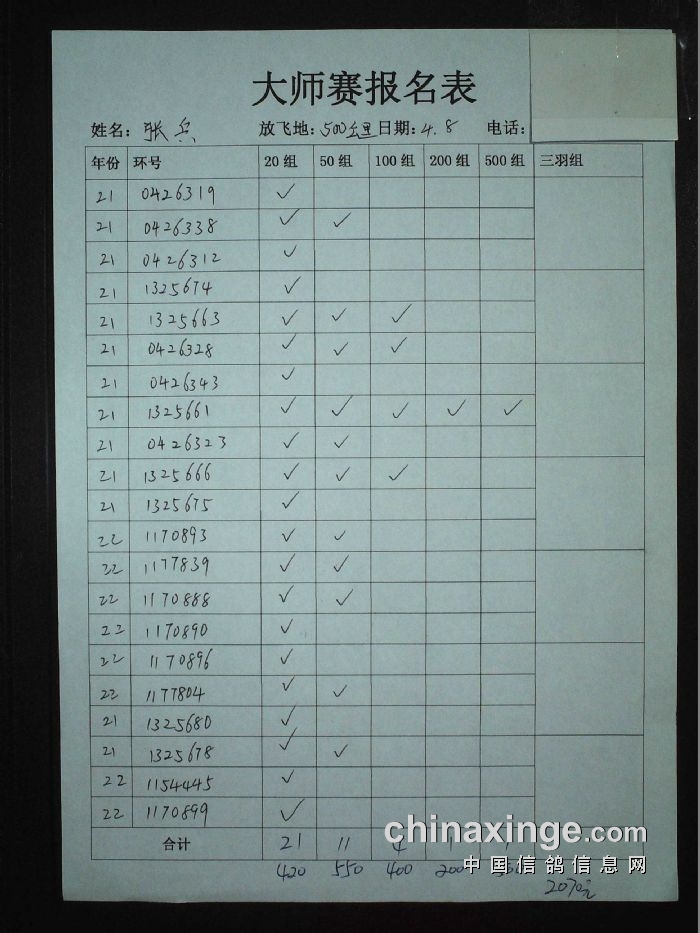 大师赛报名表
姓名: 张兵 放飞地: 500公里 日期: 4.8 电话:
年份 环号 20组 50组 100组 200组 500组 三羽组
21 0426319 ✓
21 0426338 ✓ ✓
21 0426312 ✓
21 1325674 ✓
21 1325663 ✓ ✓ ✓
21 0426328 ✓ ✓ ✓
21 0426343 ✓
21 1325661 ✓ ✓ ✓ ✓ ✓
21 0426323 ✓ ✓
21 1325666 ✓ ✓ ✓
21 1325675 ✓
22 1170893 ✓ ✓
22 1177839 ✓ ✓
22 1170888 ✓ ✓
22 1170890 ✓
22 1170896 ✓
22 1177804 ✓ ✓
21 1325680 ✓
21 1325678 ✓ ✓
22 1154445 ✓
22 1170899 ✓
合计 21 11 4 1 1
420 550 400 200
2070元
chinaxinge.com
中国信鸽信息网